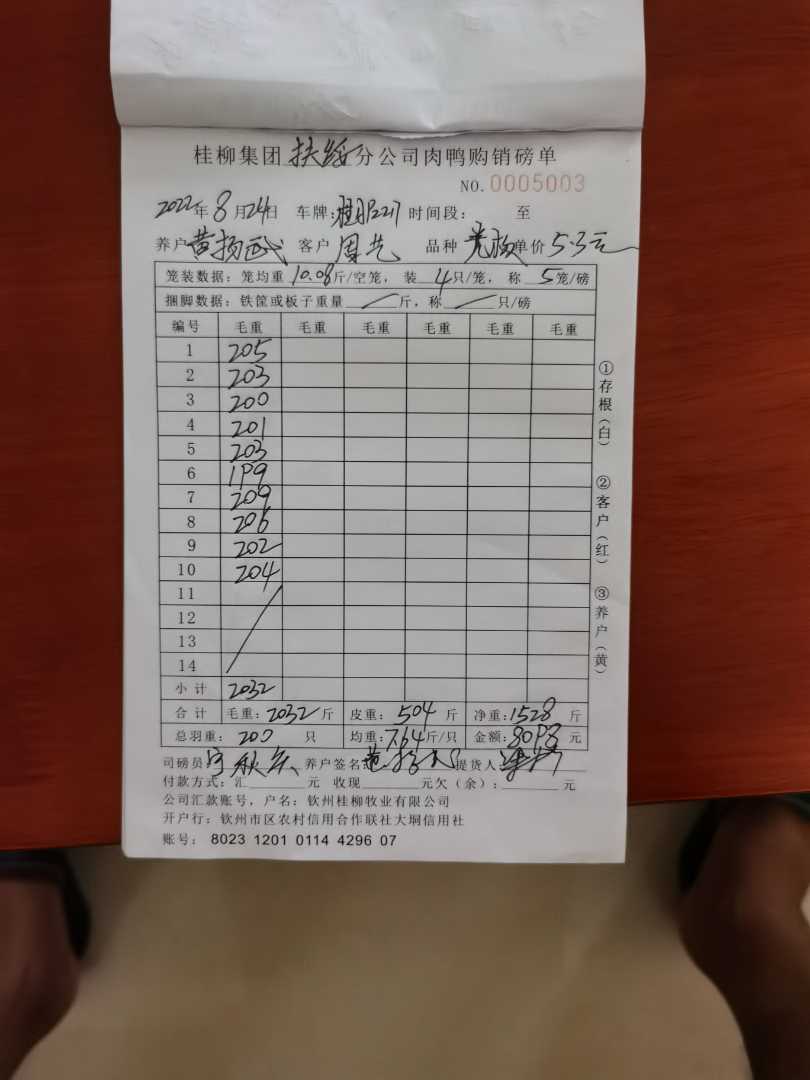 桂柳集团 扶绥 分公司肉鸭购销磅单
NO. 0005003
2022年 8月24日 车牌: 时间段: 至
养户 黄扬武 客户 周艺 品种 单价 5.3元
笼装数据: 笼均重 10.08斤/空笼, 装 4只/笼, 称 5笼/磅
捆脚数据: 铁筐或板子重量 / 斤, 称 / 只/磅
编号 毛重 毛重 毛重 毛重 毛重 毛重
1 205
2 203
3 200
4 201
5 203
6 199
7 209
8 206
9 202
10 204
11
12
13
14
小计 2032
合计 毛重: 2032斤 皮重: 504斤 净重: 1528斤
总羽重: 200 只 均重: 7.64斤/只 金额: 8098元
司磅员 养户签名: 提货人:
付款方式: 汇 元 收现 元欠(余): 元
公司汇款账号, 户名: 钦州桂柳牧业有限公司
开户行: 钦州市区农村信用合作联社大垌信用社
账号: 8023 1201 0114 4296 07
①存根(白)
②客户(红)
③养户(黄)